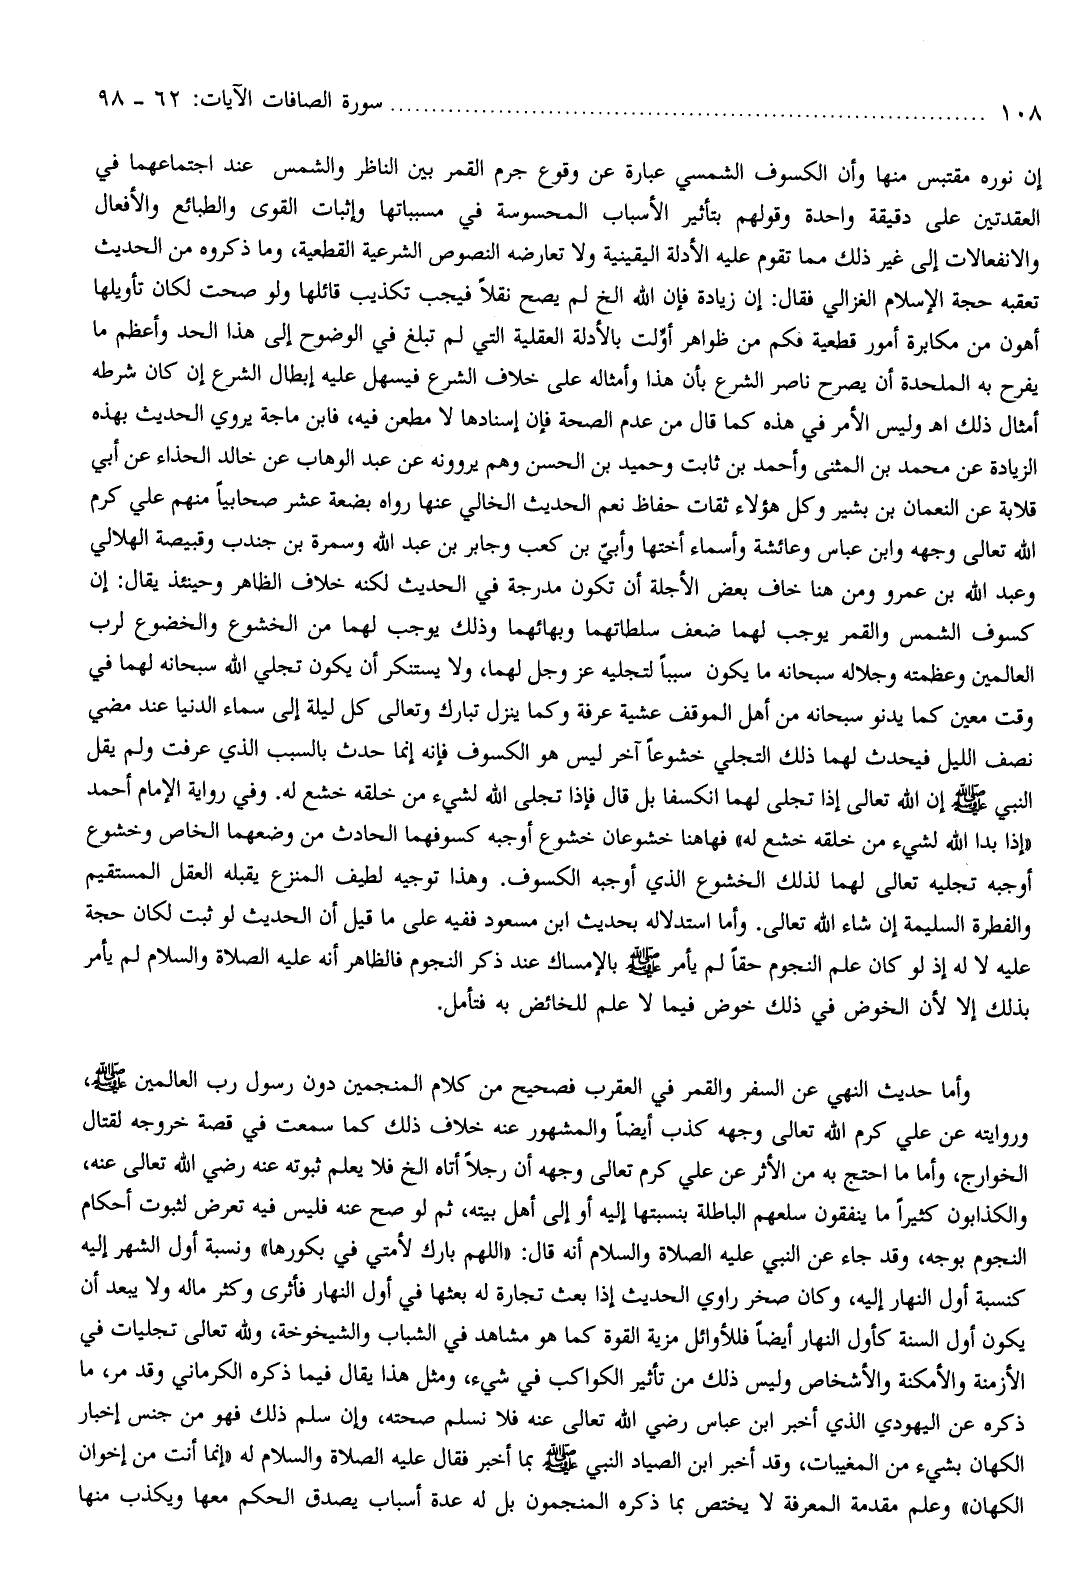 ١٠٨ ........................................................................ سورة الصافات الآيات: ٦٢ - ٩٨
إن نوره مقتبس منها وأن الكسوف الشمسي عبارة عن وقوع جرم القمر بين الناظر والشمس عند اجتماعهما في
العقدتين على دقيقة واحدة وقولهم بتأثير الأسباب المحسوسة في مسبباتها وإثبات القوى والطبائع والأفعال
والانفعالات إلى غير ذلك مما تقوم عليه الأدلة اليقينية ولا تعارضه النصوص الشرعية القطعية، وما ذكروه من الحديث
تعقبه حجة الإسلام الغزالي فقال: إن زيادة فإن الله الخ لم يصح نقلاً فيجب تكذيب قائلها ولو صحت لكان تأويلها
أهون من مكابرة أمور قطعية فكم من ظواهر أوّلت بالأدلة العقلية التي لم تبلغ في الوضوح إلى هذا الحد وأعظم ما
يفرح به الملحدة أن يصرح ناصر الشرع بأن هذا وأمثاله على خلاف الشرع فيسهل عليه إبطال الشرع إن كان شرطه
أمثال ذلك اهـ وليس الأمر في هذه كما قال من عدم الصحة فإن إسنادها لا مطعن فيه، فابن ماجة يروي الحديث بهذه
الزيادة عن محمد بن المثنى وأحمد بن ثابت وحميد بن الحسن وهم يروونه عن عبد الوهاب عن خالد الحذاء عن أبي
قلابة عن النعمان بن بشير وكل هؤلاء ثقات حفاظ نعم الحديث الخالي عنها رواه بضعة عشر صحابياً منهم علي كرم
الله تعالى وجهه وابن عباس وعائشة وأسماء أختها وأبيّ بن كعب وجابر بن عبد الله وسمرة بن جندب وقبيصة الهلالي
وعبد الله بن عمرو ومن هنا خاف بعض الأجلة أن تكون مدرجة في الحديث لكنه خلاف الظاهر وحينئذ يقال: إن
كسوف الشمس والقمر يوجب لهما ضعف سلطاتهما وبهائهما وذلك يوجب لهما من الخشوع والخضوع لرب
العالمين وعظمته وجلاله سبحانه ما يكون سبباً لتجليه عز وجل لهما، ولا يستنكر أن يكون تجلي الله سبحانه لهما في
وقت معين كما يدنو سبحانه من أهل الموقف عشية عرفة وكما ينزل تبارك وتعالى كل ليلة إلى سماء الدنيا عند مضي
نصف الليل فيحدث لهما ذلك التجلي خشوعاً آخر ليس هو الكسوف فإنه إنما حدث بالسبب الذي عرفت ولم يقل
النبي ﷺ إن الله تعالى إذا تجلى لهما انكسفا بل قال فإذا تجلى الله لشيء من خلقه خشع له. وفي رواية الإمام أحمد
«إذا بدا الله لشيء من خلقه خشع له» فهاهنا خشوعان خشوع أوجبه كسوفهما الحادث من وضعهما الخاص وخشوع
أوجبه تجليه تعالى لهما لذلك الخشوع الذي أوجبه الكسوف. وهذا توجيه لطيف المنزع يقبله العقل المستقيم
والفطرة السليمة إن شاء الله تعالى. وأما استدلاله بحديث ابن مسعود ففيه على ما قيل أن الحديث لو ثبت لكان حجة
عليه لا له إذ لو كان علم النجوم حقاً لم يأمر ﷺ بالإمساك عند ذكر النجوم فالظاهر أنه عليه الصلاة والسلام لم يأمر
بذلك إلا لأن الخوض في ذلك خوض فيما لا علم للخائض به فتأمل.
وأما حديث النهي عن السفر والقمر في العقرب فصحيح من كلام المنجمين دون رسول رب العالمين ﷺ،
وروايته عن علي كرم الله تعالى وجهه كذب أيضاً والمشهور عنه خلاف ذلك كما سمعت في قصة خروجه لقتال
الخوارج، وأما ما احتج به من الأثر عن علي كرم تعالى وجهه أن رجلاً أتاه الخ فلا يعلم ثبوته عنه رضي الله تعالى عنه،
والكذابون كثيراً ما ينفقون سلعهم الباطلة بنسبتها إليه أو إلى أهل بيته، ثم لو صح عنه فليس فيه تعرض لثبوت أحكام
النجوم بوجه، وقد جاء عن النبي عليه الصلاة والسلام أنه قال: «اللهم بارك لأمتي في بكورها» ونسبة أول الشهر إليه
كنسبة أول النهار إليه، وكان صخر راوي الحديث إذا بعث تجارة له بعثها في أول النهار فأثرى وكثر ماله ولا يبعد أن
يكون أول السنة كأول النهار أيضاً فللأوائل مزية القوة كما هو مشاهد في الشباب والشيخوخة، ولله تعالى تجليات في
الأزمنة والأمكنة والأشخاص وليس ذلك من تأثير الكواكب في شيء، ومثل هذا يقال فيما ذكره الكرماني وقد مر، ما
ذكره عن اليهودي الذي أخبر ابن عباس رضي الله تعالى عنه فلا نسلم صحته، وإن سلم ذلك فهو من جنس إخبار
الكهان بشيء من المغيبات، وقد أخبر ابن الصياد النبي ﷺ بما أخبر فقال عليه الصلاة والسلام له «إنما أنت من إخوان
الكهان» وعلم مقدمة المعرفة لا يختص بما ذكره المنجمون بل له عدة أسباب يصدق الحكم معها ويكذب منها